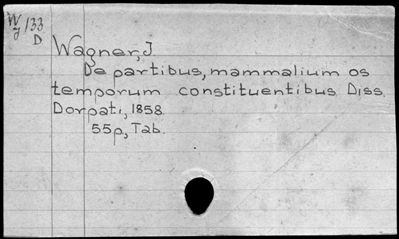 W
J 133
D
Wagner, J
De partibus, mammalium os
temporum constituentibus Diss.
Dorpati, 1858.
55p, Tab.